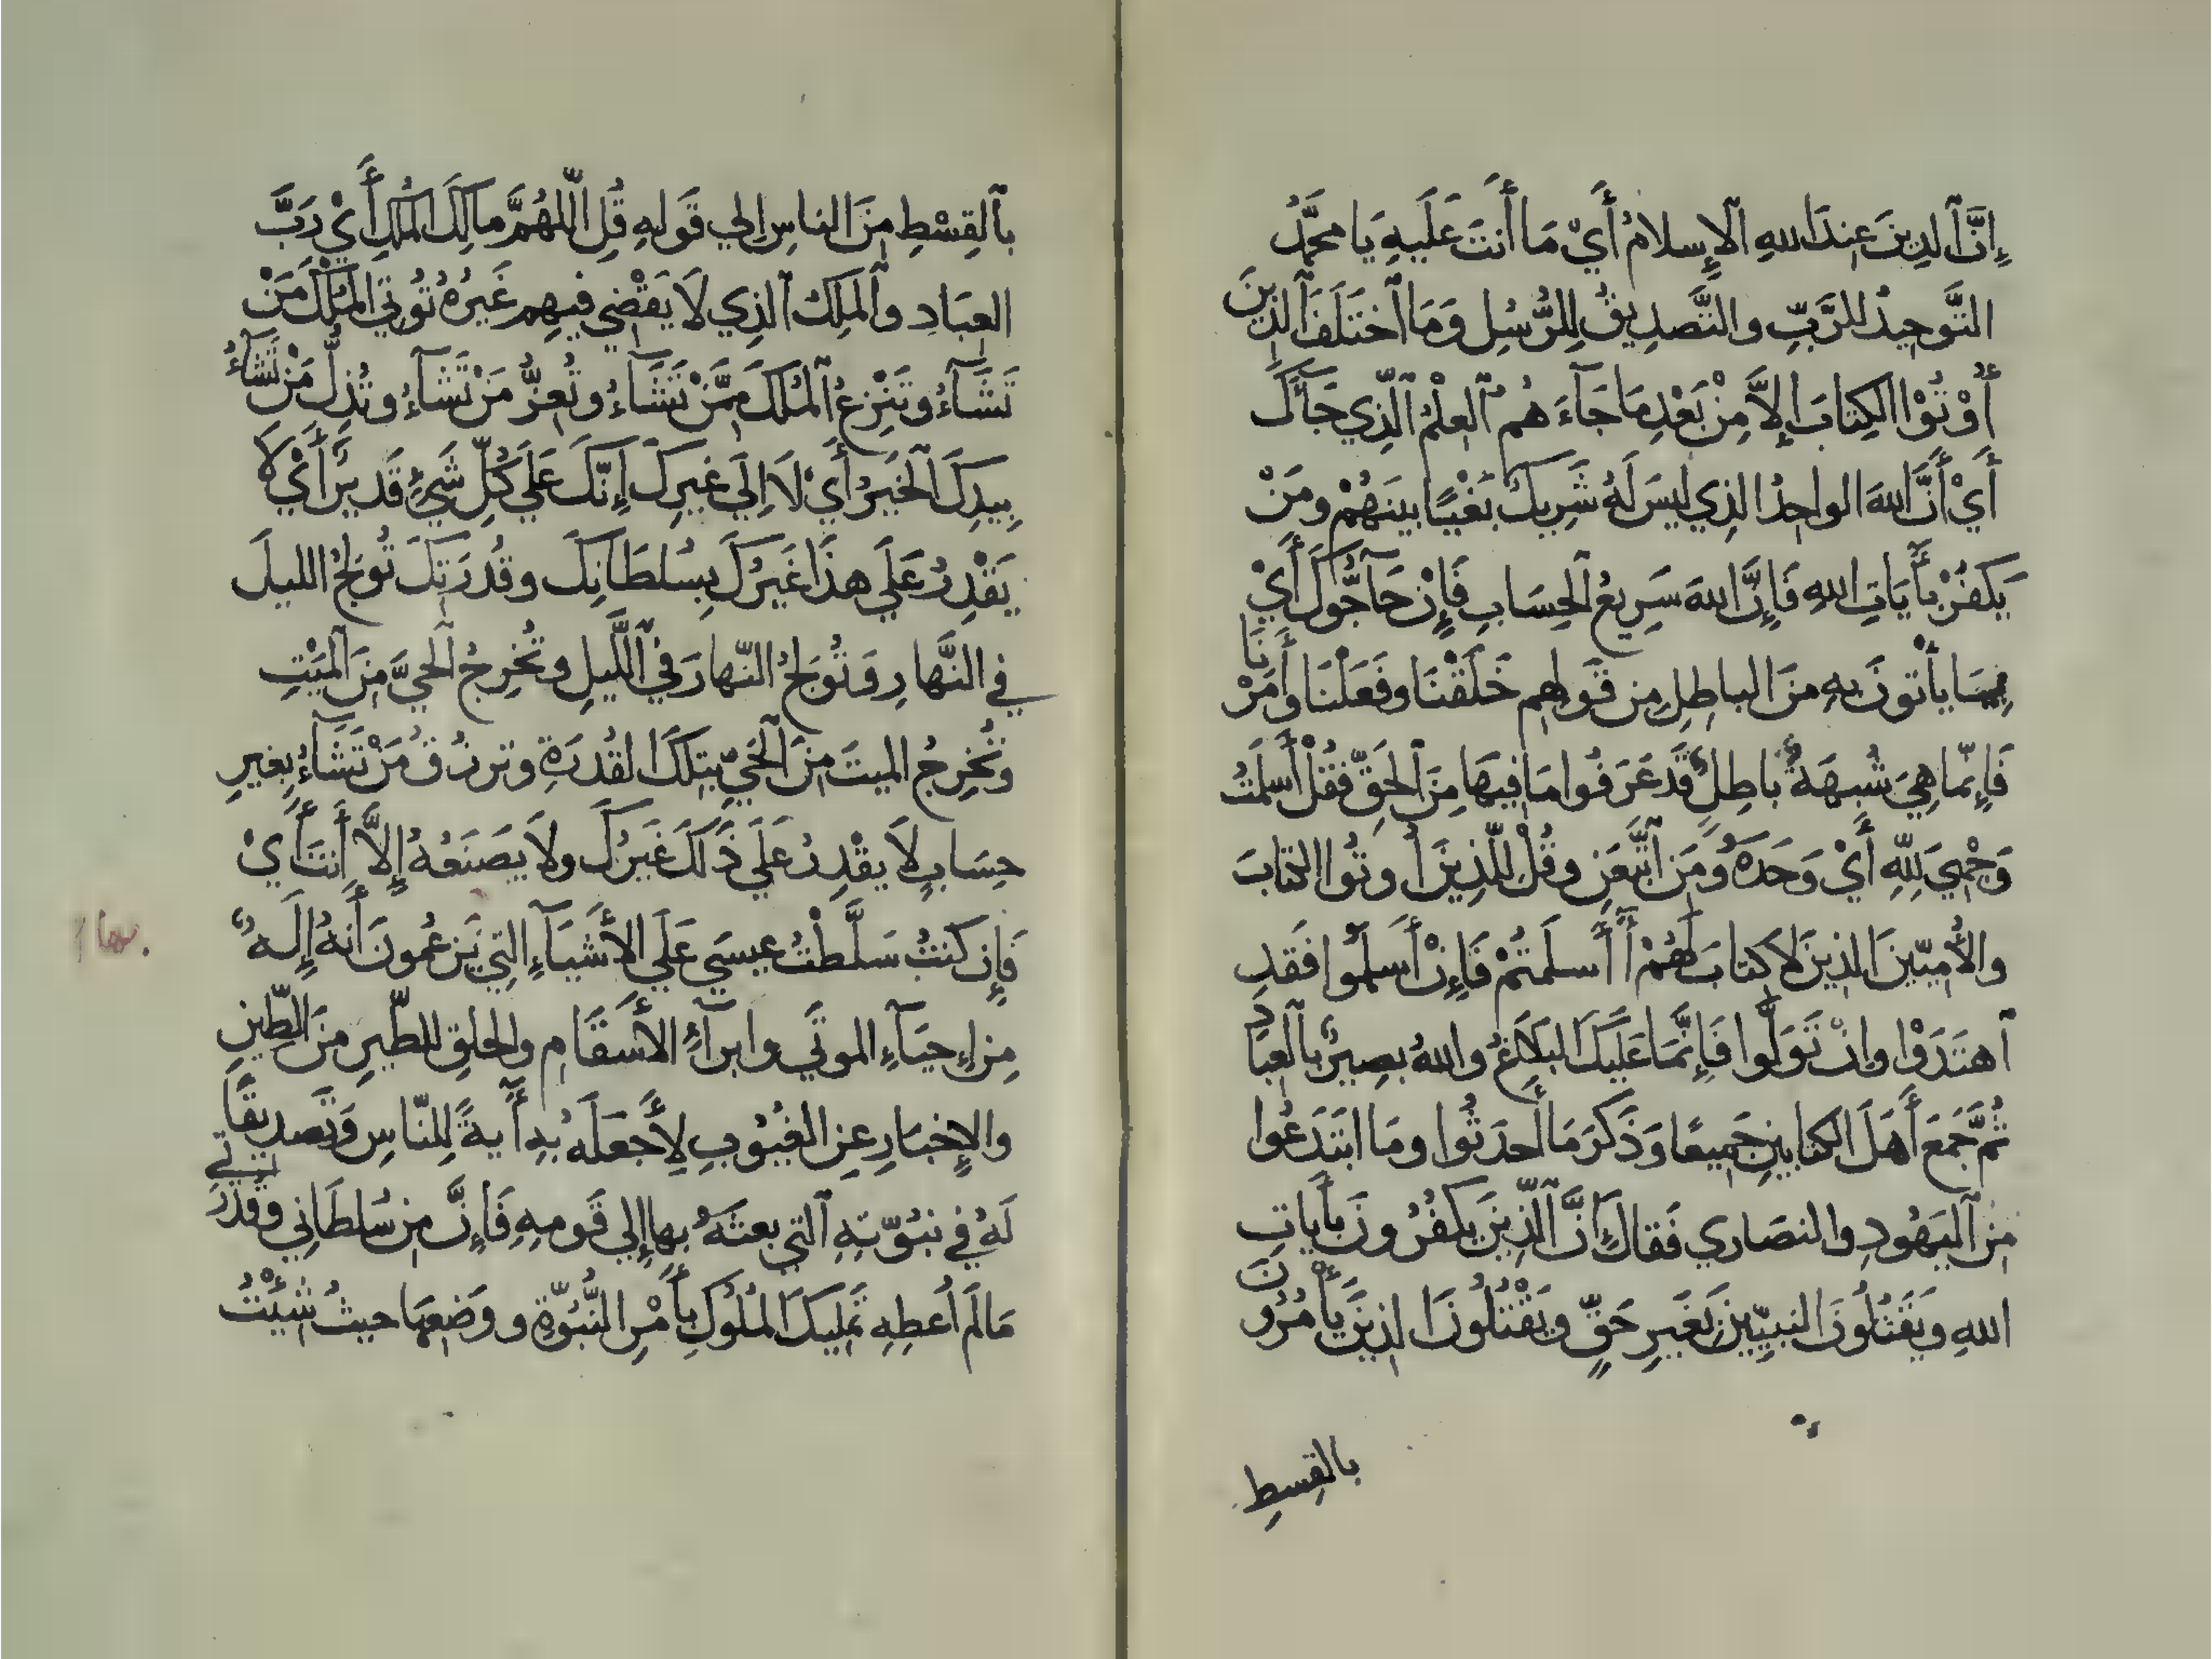 إِنَّ ٱلدِينَ عِندَ اللهِ ٱلإِسلامُ أَيْ مَا أَنتَ عَلَيهِ يَا محَمَّدُ
التَّوحِيدُ للرَّبِّ والتَّصدِيقُ لِلرُّسُلِ وَمَا ٱختَلَفَ ٱلَّذِينَ
أُوْتُوْا الكِتَابَ إلاَّ مِنْ بَعْدِ مَا جَآءَهُم ٱلعِلْمُ ٱلَّذِي جَآءَكَ
أَيْ أَنَّ اللهَ الواحِدُ الذِي لَيسَ لَهُ شَرِيكٌ بَغْيًا بينَهُمْ ومَنْ
يَكفُرْ بأَيَاتِ اللهِ فَإِنَّ اللهَ سَرِيعُ ٱلحِسَابِ فَإِن حَآجُّوكَ أَيْ
بِمَا يأْتونَ بِهِ مِنَ الباطِلِ مِن قَولِهِم خَلَقْنَا وفَعَلْنَا وأَمَرْنَا
فَإِنّما هِيَ شُبهَةٌ باطِلٌ قَد عَرَفُوا مَا فِيهَا مِنَ ٱلحَقِّ فقُلْ أَسلَمْتُ
وَجْهِيَ لِلّهِ أَيْ وَحَدَهُ ومَنِ ٱتَّبَعَنِ وقُلْ لِلّذِينَ أُوتُوا الكِتَابَ
والأُمِيِّينَ الذِينَ لاَ كتابَ لَهُمْ أَأَسلَمتُمْ فَإِنْ أَسلَمُوا فَقَدِ
ٱهتَدَوْا وإنْ تَوَلَّوا فَإِنَّمَا عَلَيكَ البَلاَغُ واللهُ بصِيرٌ بٱلعِبَادِ
ثُمَّ جَمَعَ أَهَلَ الكتابَينِ جَمِيعًا وَذَكَرَ مَا أَحدَثُوا ومَا ابتَدَعُوا
مِنَ ٱليَهُودِ والنصَارَي فَقالَ إِنَّ ٱلَّذِينَ يَكفُرُونَ بأَيَاتِ
اللهِ ويَقَتُلُونَ النبيِّينَ بَغَيرِ حَقٍّ ويَقْتُلُونَ الذِينَ يأْمُرُونَ
بالقِسطِ
بٱلقِسْطِ مِنَ الناسِ إلي قَولِهِ قُلِ اللّٰهُمَّ مالِكَ المُلكِ أَيْ رَبَّ
العِبَادِ وٱلمَلِكُ ٱلذِي لاَ يَقْضِي فِيهِم غَيرُهُ تُوتِي المُلْكَ مَنْ
تَشَآءُ وتَنْزِعُ ٱلمُلكَ مِمَّنْ تَشَآءُ وتُعِزُّ مَنْ تَشَآءُ وتُذِلُّ مَنْ تَشَآءُ
بِيَدِكَ ٱلخَيرُ أَيْ لاَ إلَي غَيرِكَ إِنَّكَ عَلَي كُلِّ شَيْءٍ قَدِيرٌ أَيْ لاَ
يَقْدِرُ عَلَي هذَا غَيرُكَ بِسُلطَانِكَ وقُدرَتِكَ تُولِجُ الليلَ
في النَّهارِ وَتُولِجُ النّهارَ في ٱلَّليلِ وتُخرِجُ ٱلحيَّ مِنَ ٱلمَيْتِ
وتُخرِجُ الميتَ مِنَ ٱلحَيِّ بِتلكَ القُدرَةِ وترزُقُ مَنْ تَشَآءُ بِغيرِ
حِسَابٍ لاَ يقْدِرُ عَلَي ذَلكَ غَيرُكَ ولاَ يصَنَعُهُ إلاَّ أَنتَ أَيْ
فَإِن كنتُ سَلَّطْتُ عِيسَي عَلَي الأَشيَآءِ التِي يَزعُمونَ أَنَّهُ إِلَهٌ
مِن إحيَآءِ الموتَي وابرآءِ الأَسقَامِ والخلقِ للطّيرِ مِنَ الطِّينِ
والإِخبَارِ عِنِ الغيُوبِ لِأَجعَلَهُ بِهِ أَيةً لِلنّاسِ وَتَصدِيقًا
لَهُ فِي نبُوّتِهِ ٱلتي بعثتُهُ بِها إلي قَومِهِ فَإِنَّ مِن سُلطَاني وقُدرَتِي
مَا لَم أُعطِهِ تَمليكَ المُلُوكِ بأَمْرِ النُّبُوّةِ ووَضعِهَا حيثُ شِيْتُ